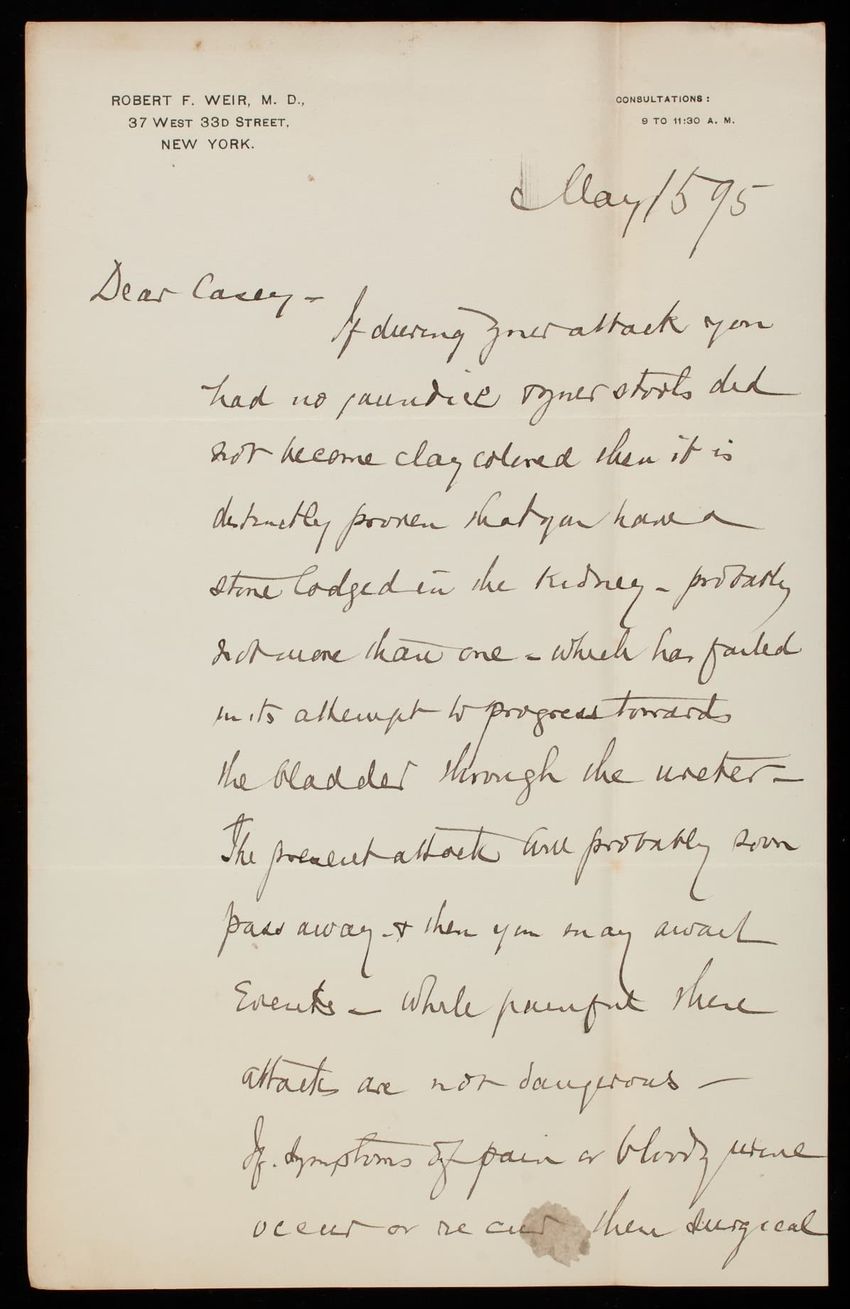 ROBERT F. WEIR, M. D.,
37 WEST 33D STREET,
NEW YORK.
CONSULTATIONS:
9 TO 11:30 A. M.
May 15 95
Dear Casey -
If during your attack you
had no jaundice & your stools did
not become clay colored then it is
distinctly proven that you have a
stone lodged in the kidney - probably
not more than one - which has failed
in its attempt to progress towards
the bladder through the ureter -
The present attack will probably soon
pass away & then you may await
Events - While painful these
attacks are not dangerous -
If symptoms of pain or bloody urine
occur or recur then surgical